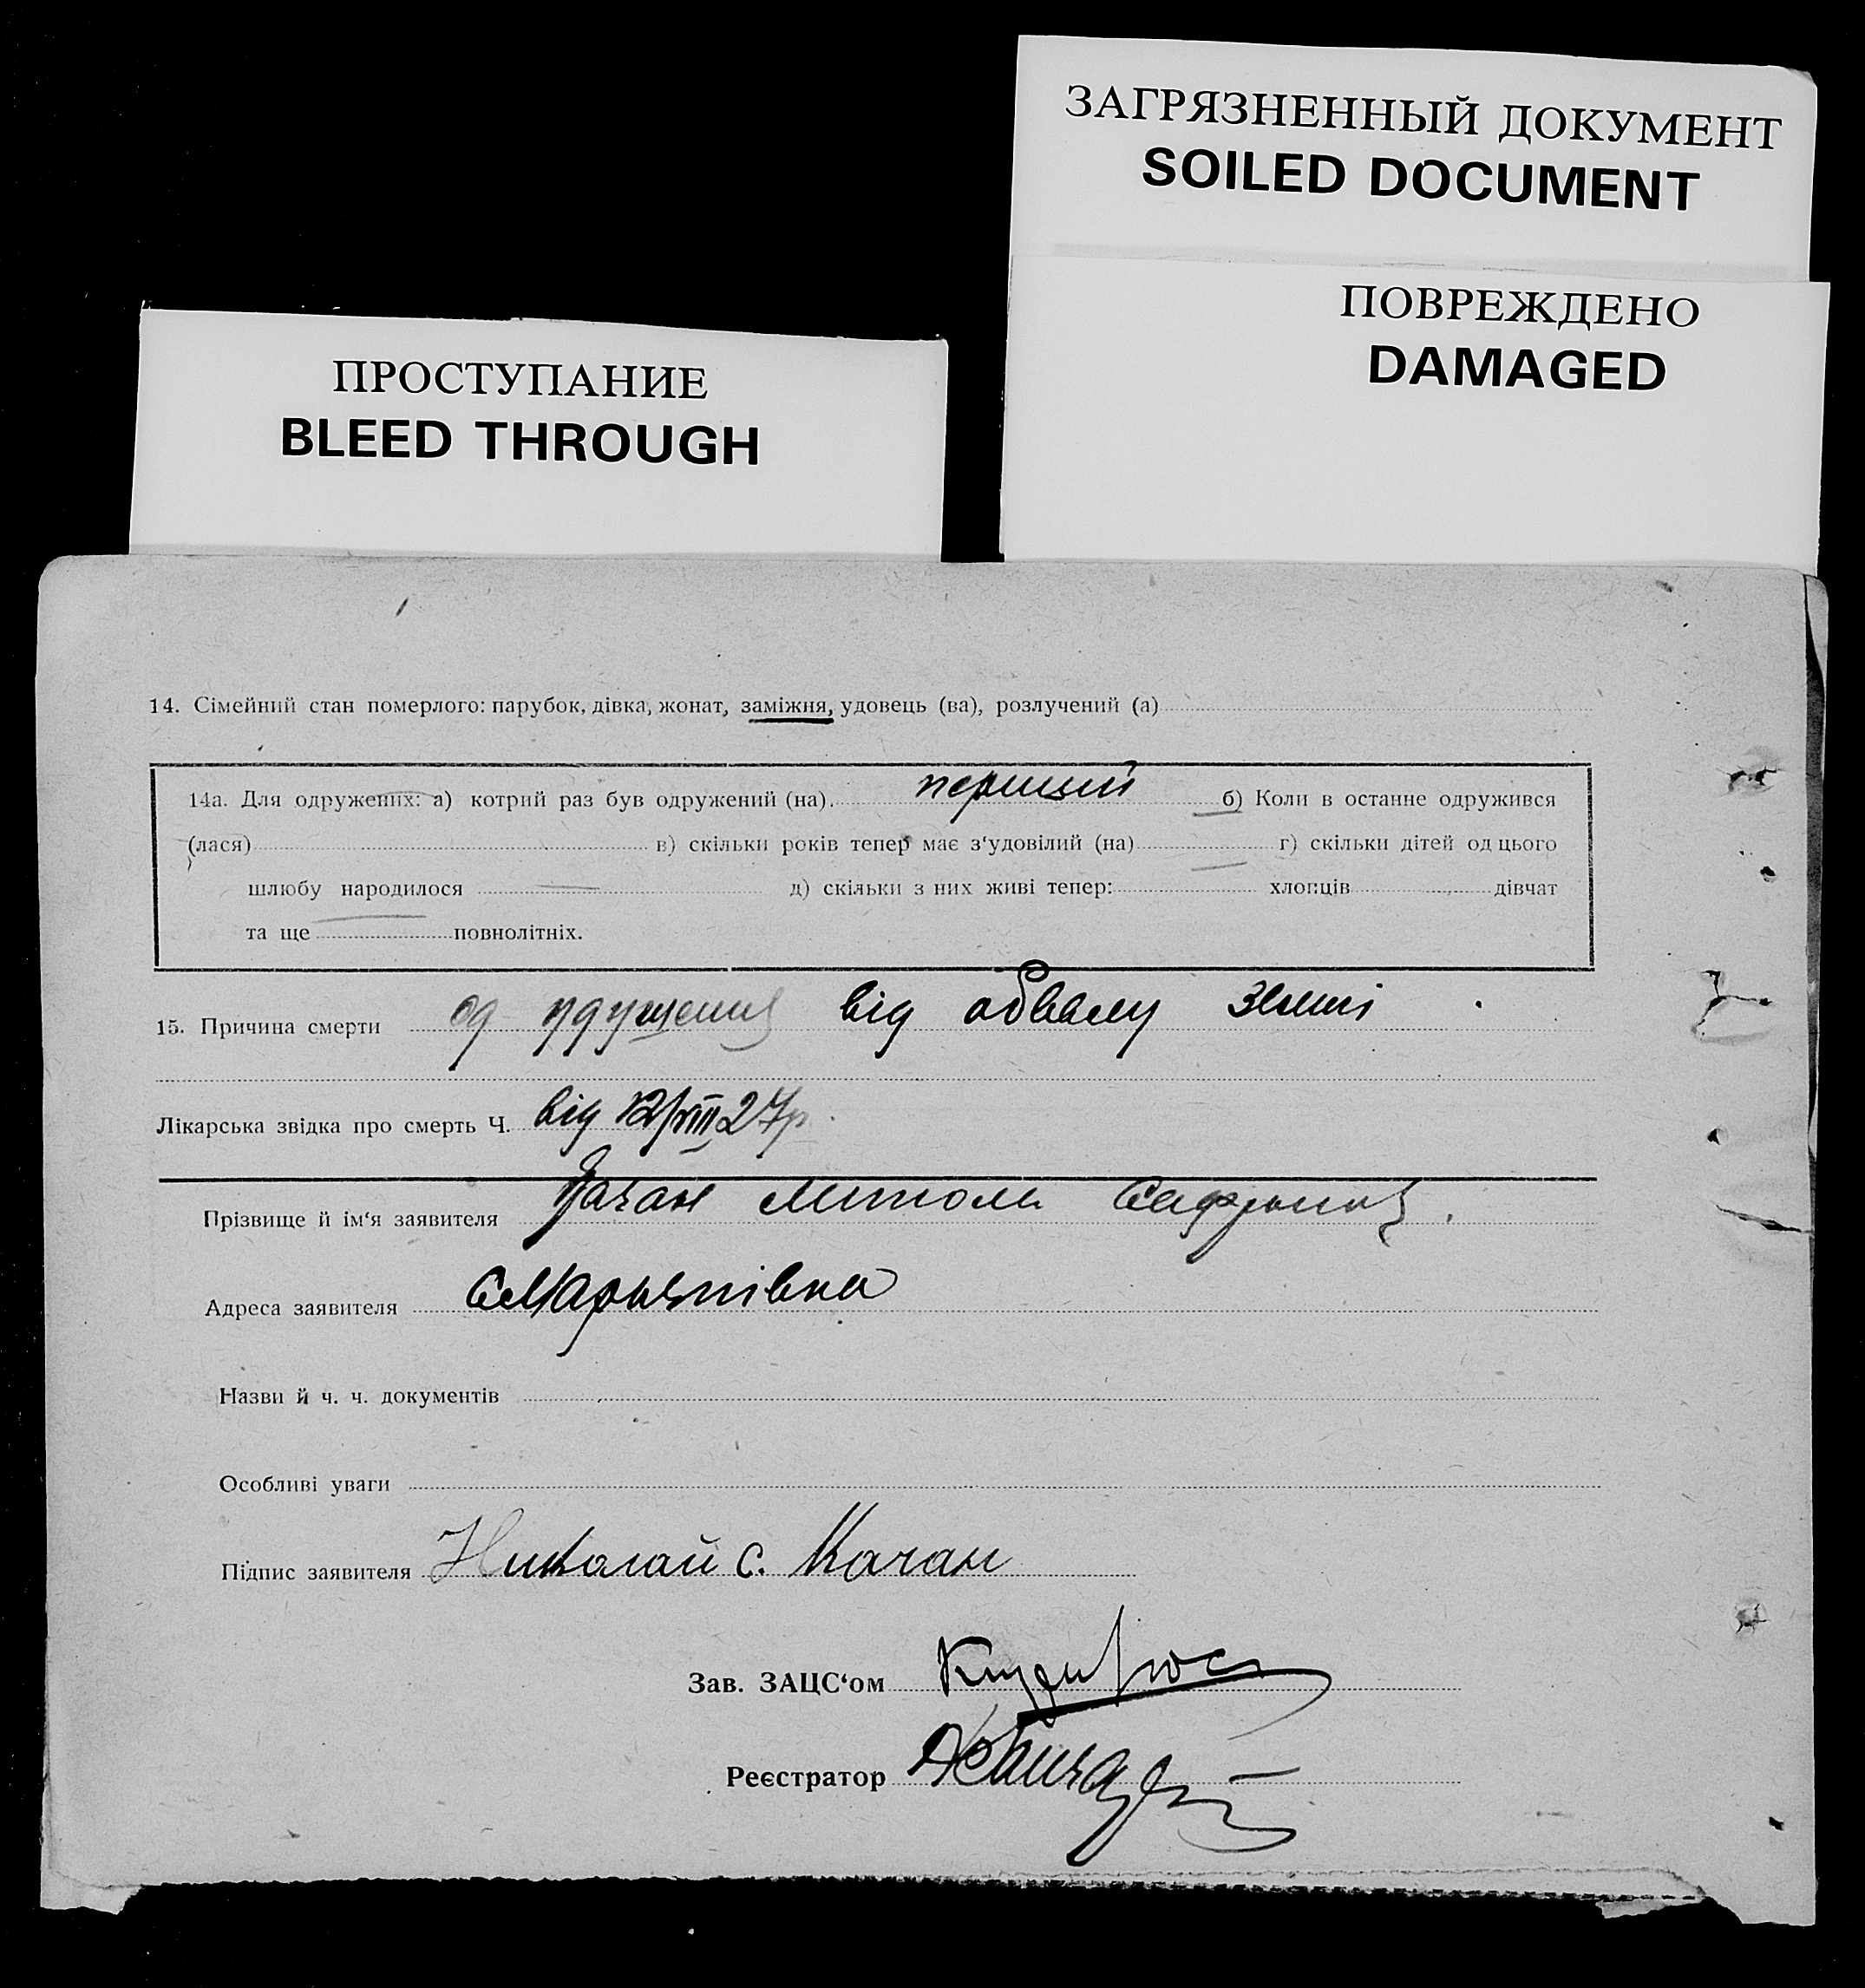 ЗАГРЯЗНЕННЫЙ ДОКУМЕНТ
SOILED DOCUMENT
ПОВРЕЖДЕНО
DAMAGED
ПРОСТУПАНИЕ
BLEED THROUGH
14. Сімейний стан померлого: парубок, дівка, жонат, заміжня, удовець (ва), розлучений (а)
14а. Для одружених: а) котрий раз був одружений (на). перший б) Коли в останне одружився
(лася) в) скільки років тепер має з‘удовілий (на) г) скільки дітей од цього
шлюбу народилося д) скільки з них живі тепер: хлопців дівчат
та ще повнолітніх.
15. Причина смерти од удушения від обвалу землі
Лікарська звідка про смерть Ч. від 12/VIII 27р.
Прізвище й ім‘я заявителя Качан Микола
Адреса заявителя с Мар'янівка
Назви й ч. ч. документів
Особливі уваги
Підпис заявителя Николай С. Качан
Зав. ЗАЦС‘ом
Реєстратор